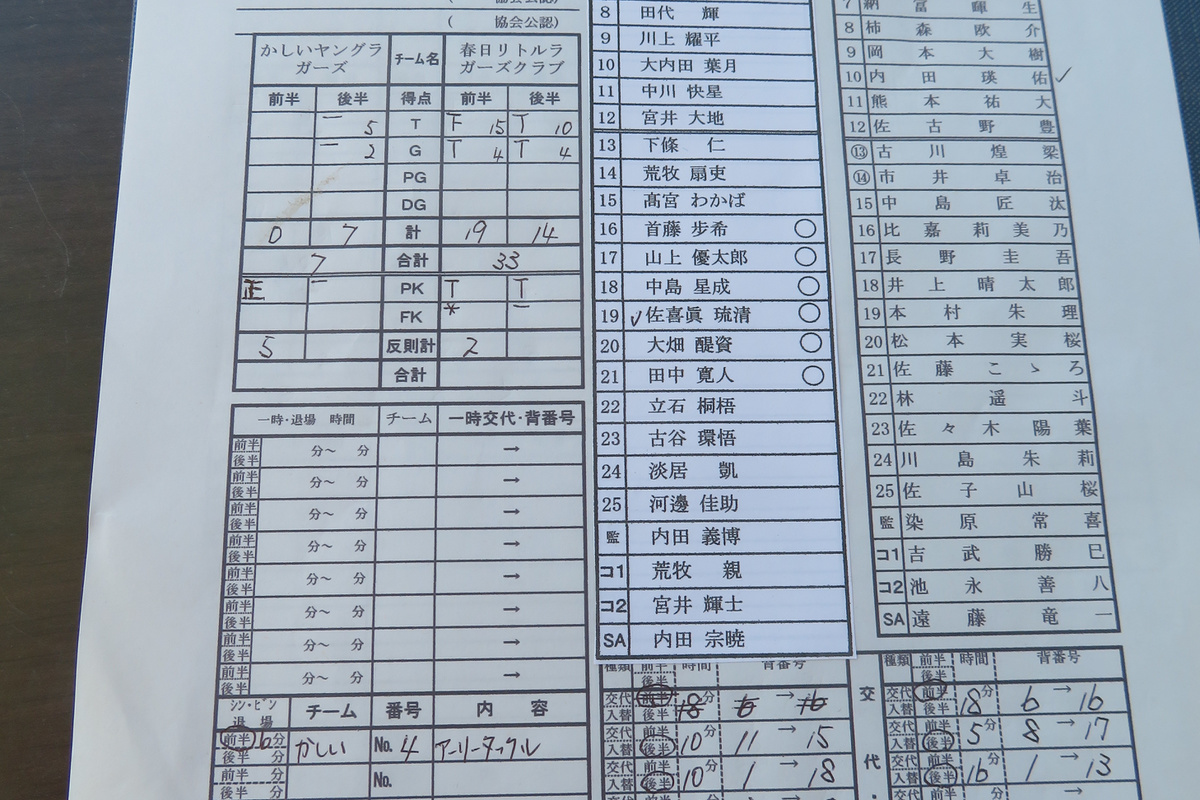 ( 協会公認)
( 協会公認)
かしいヤングラガーズ チーム名 春日リトルラガーズクラブ
前半 後半 得点 前半 後半
一 5 T 下 15 T 10
一 2 G T 4 T 4
PG
DG
0 7 計 19 14
7 合計 33
正 一 PK T T
FK 一
5 反則計 2
合計
一時・退場 時間 チーム 一時交代・背番号
前半 後半 分～ 分 →
前半 後半 分～ 分 →
前半 後半 分～ 分 →
前半 後半 分～ 分 →
前半 後半 分～ 分 →
前半 後半 分～ 分 →
前半 後半 分～ 分 →
前半 後半 分～ 分 →
シン・ビン 退場 チーム 番号 内容
前半 6分 後半 分 かしい No. 4 アーリータックル
前半 分 後半 分 No.
8 田代 輝
9 川上 耀平
10 大内田 葉月
11 中川 快星
12 宮井 大地
13 下條 仁
14 荒牧 扇吏
15 髙宮 わかば
16 首藤 歩希 ○
17 山上 優太郎 ○
18 中島 星成 ○
19 ✓ 佐喜眞 琉清 ○
20 大畑 醍資 ○
21 田中 寛人 ○
22 立石 桐梧
23 古谷 環悟
24 淡居 凱
25 河邊 佳助
監 内田 義博
コ1 荒牧 親
コ2 宮井 輝士
SA 内田 宗暁
種類 前半 後半 時間 背番号
交代 入替 前半 後半 18分 6 → 16
交代 入替 前半 後半 10分 11 → 15
交代 入替 前半 後半 10分 1 → 18
交代・
7 納富輝生
8 柿森欧介
9 岡本大樹
10 内田瑛佑 ✓
11 熊本祐大
12 佐古野豊
⑬ 古川煌梁
⑭ 市井卓治
15 中島匠汰
16 比嘉莉美乃
17 長野圭吾
18 井上晴太郎
19 本村朱理
20 松本実桜
21 佐藤こゝろ
22 林遥斗
23 佐々木陽葉
24 川島朱莉
25 佐子山桜
監 染原常喜
コ1 吉武勝巳
コ2 池永善八
SA 遠藤竜一
種類 前半 後半 時間 背番号
交代 入替 前半 後半 18分 6 → 16
交代 入替 前半 後半 5分 8 → 17
交代 入替 前半 後半 16分 1 → 13